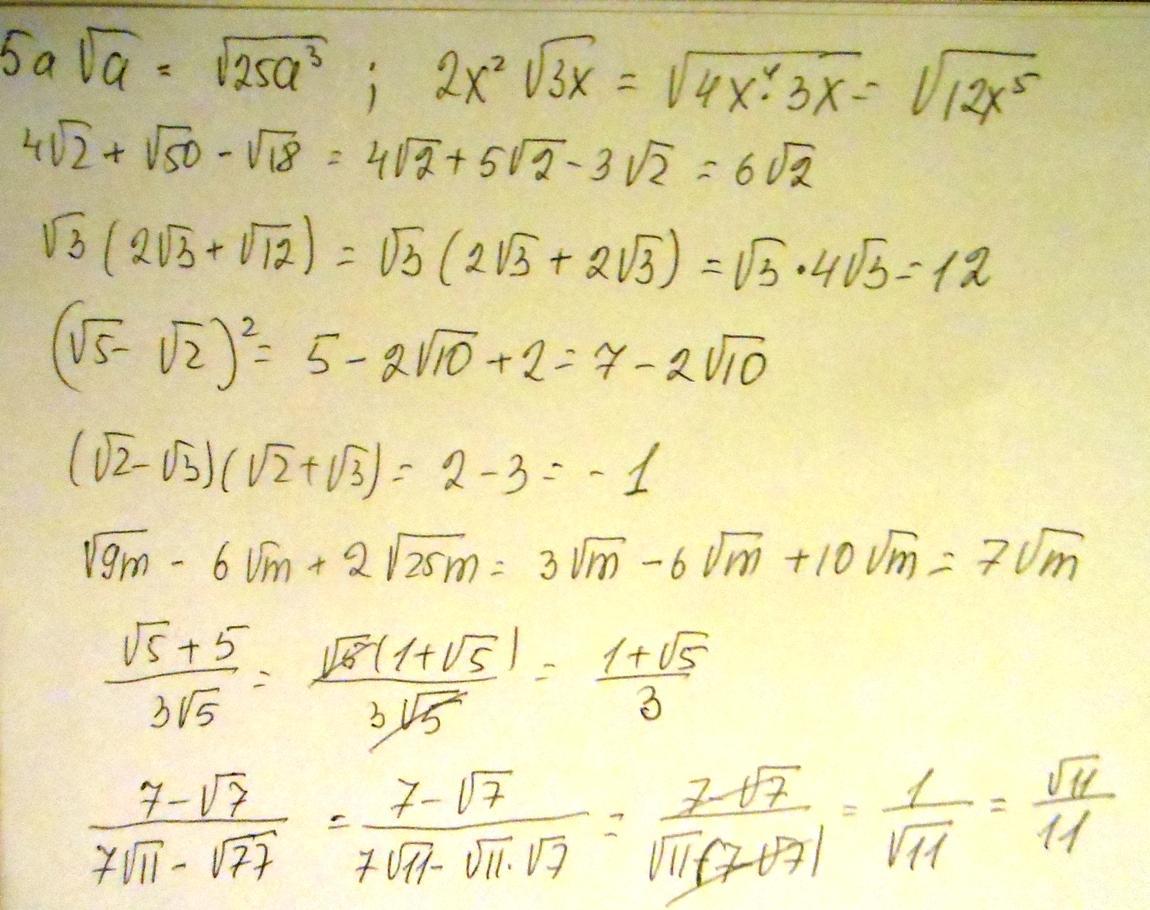 5a√a = √25a³ ; 2x²√3x = √4x⁴·3x = √12x⁵
4√2 + √50 - √18 = 4√2 + 5√2 - 3√2 = 6√2
√3 (2√3 + √12) = √3 (2√3 + 2√3) = √3 · 4√3 = 12
(√5 - √2)² = 5 - 2√10 + 2 = 7 - 2√10
(√2 - √3)(√2 + √3) = 2 - 3 = -1
√9m - 6√m + 2√25m = 3√m - 6√m + 10√m = 7√m
(√5 + 5)/(3√5) = (√5(1 + √5))/(3√5) = (1 + √5)/3
(7 - √7)/(7√11 - √77) = (7 - √7)/(7√11 - √11·√7) = (7 - √7)/(√11(7 - √7)) = 1/√11 = √11/11